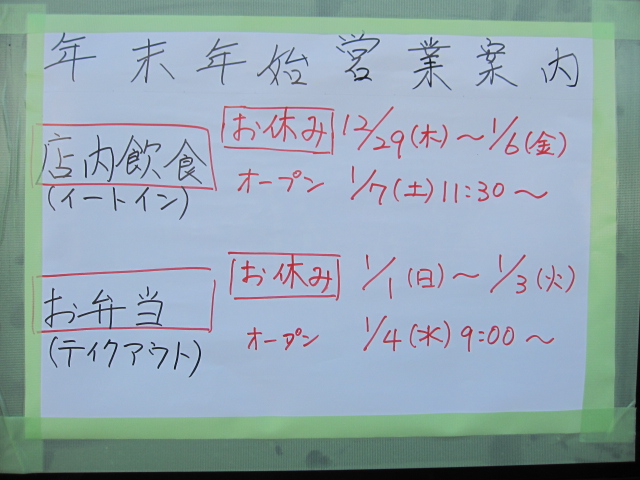 年末年始営業案内
店内飲食 お休み 12/29(木)～1/6(金)
(イートイン) オープン 1/7(土)11:30～
お弁当 お休み 1/1(日)～1/3(火)
(テイクアウト) オープン 1/4(水)9:00～